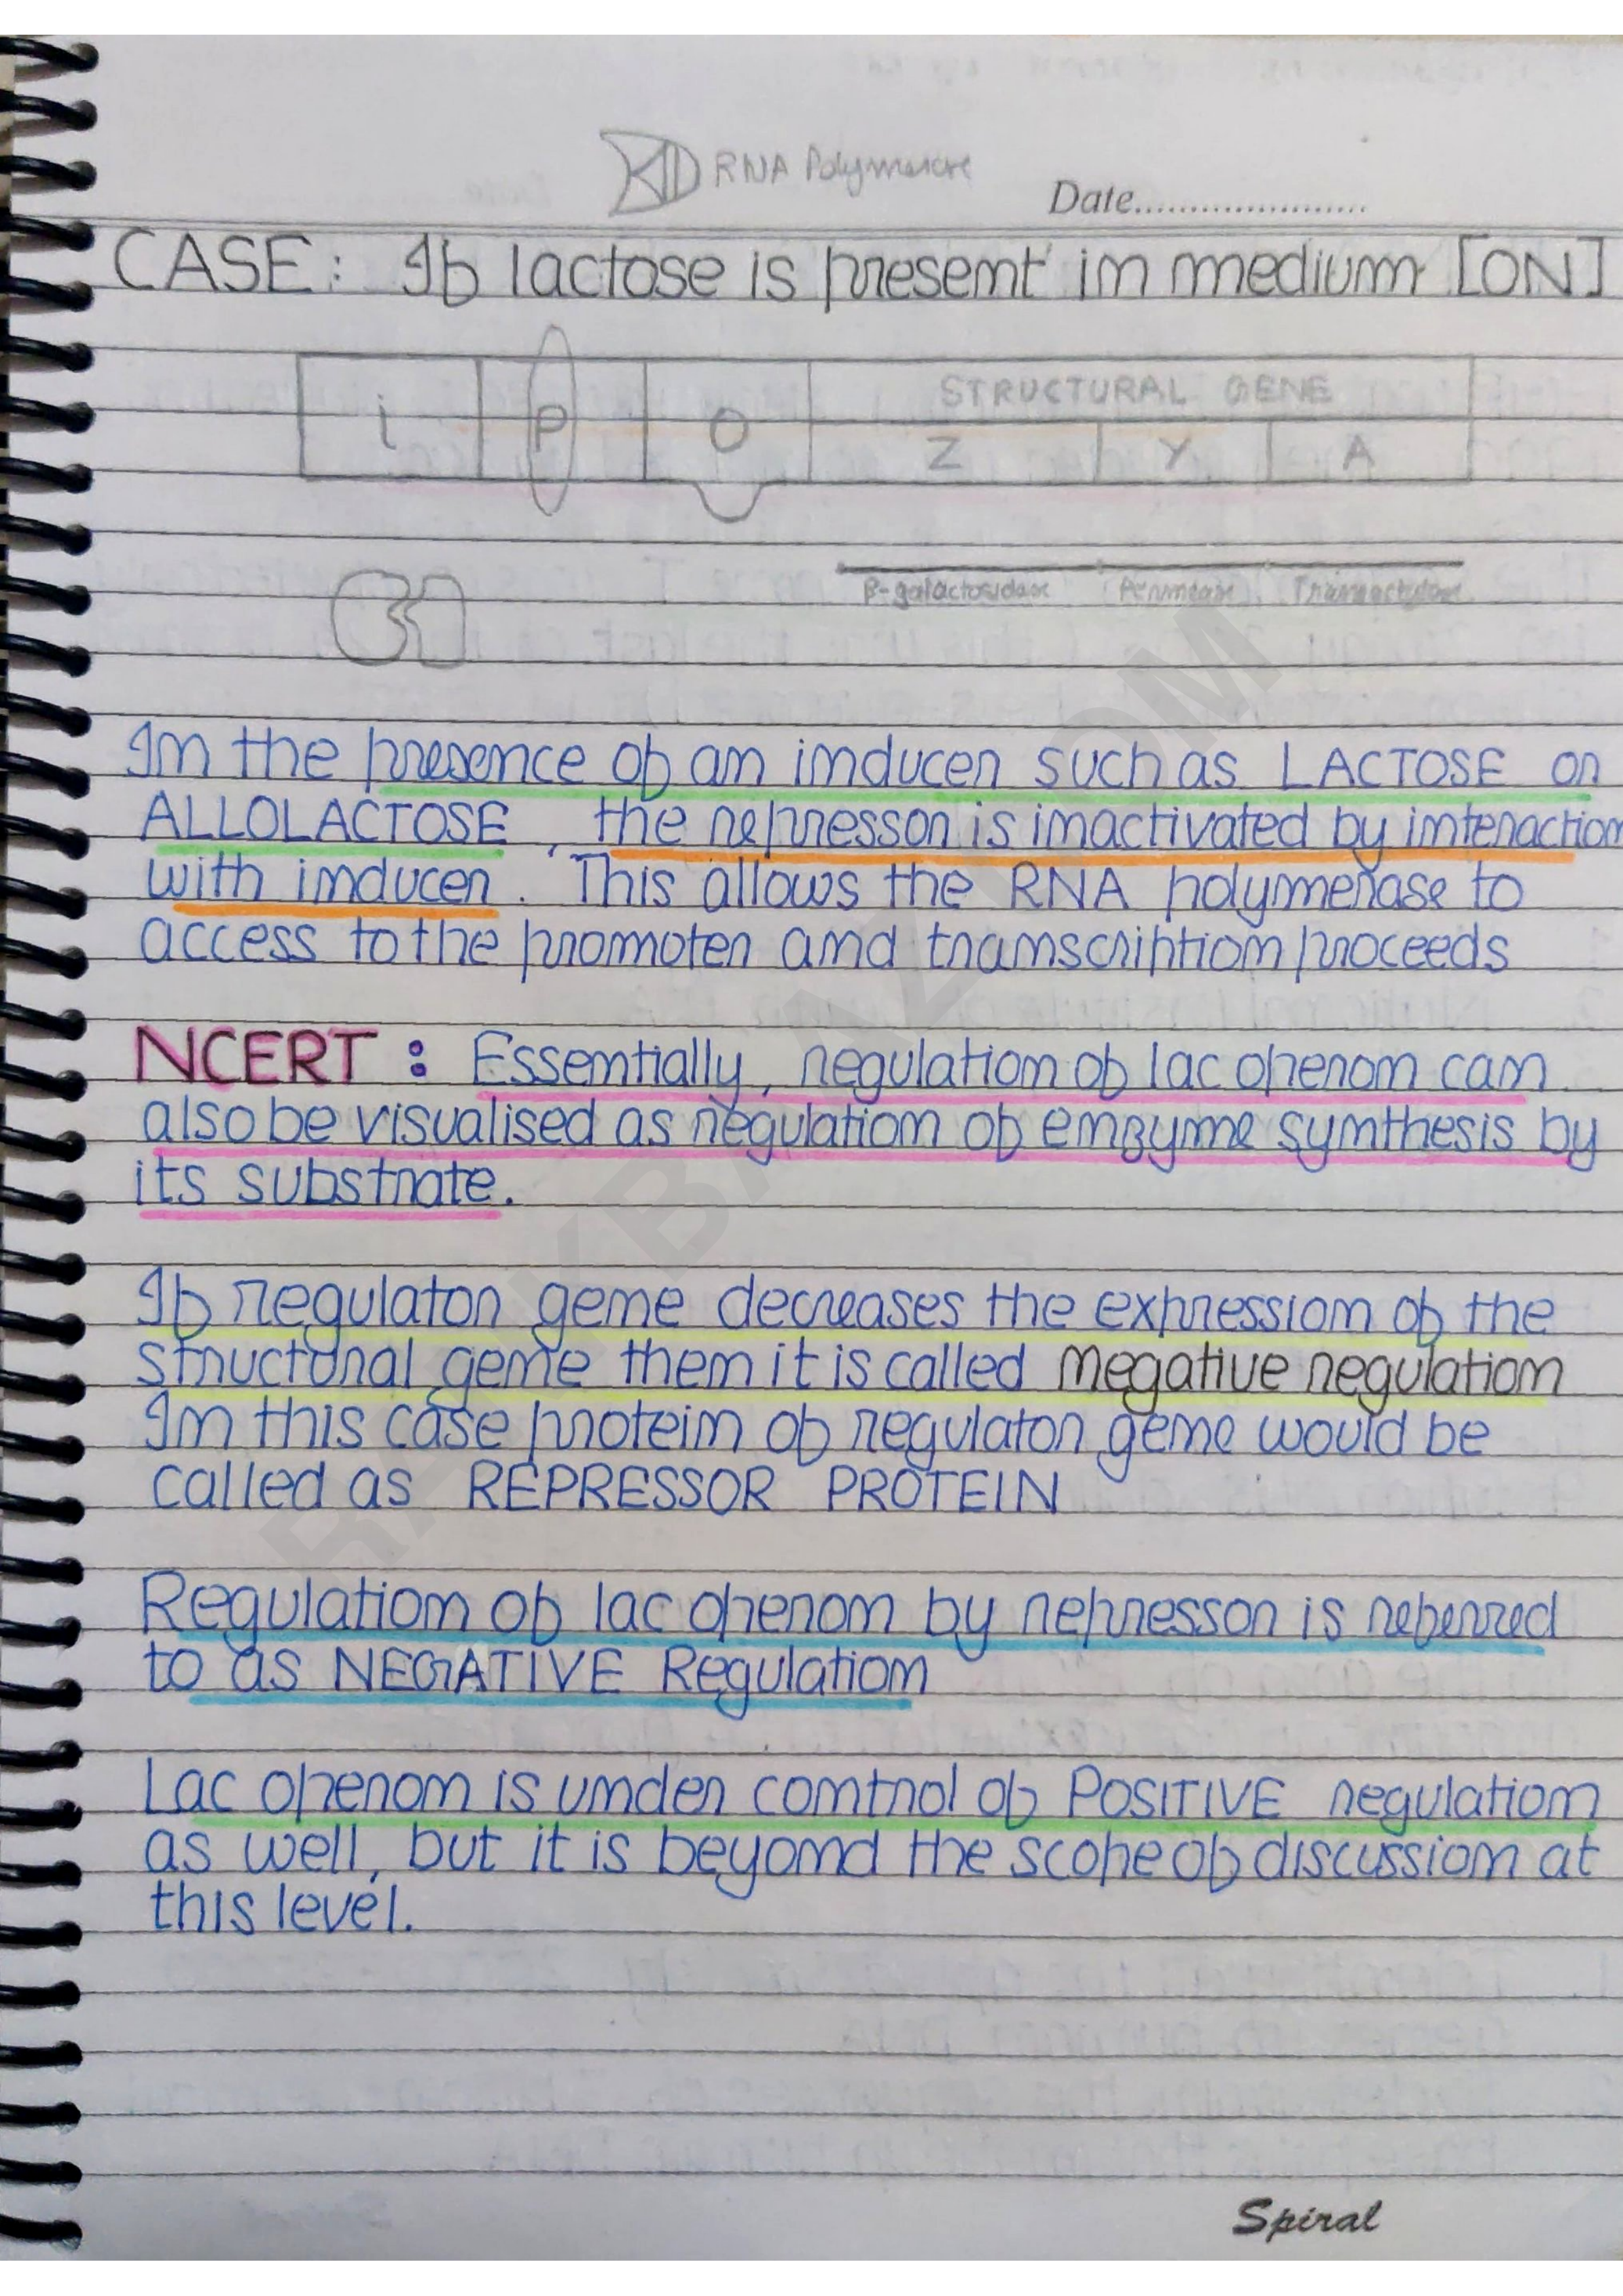 RNA Polymerase
Date......................
CASE: If lactose is present in medium [ON]
i P O STRUCTURAL GENE
Z Y A
β-galactosidase Permease Transacetylase
In the presence of an inducer such as LACTOSE or
ALLOLACTOSE, the repressor is inactivated by interaction
with inducer. This allows the RNA polymerase to
access to the promoter and transcription proceeds
NCERT: Essentially, regulation of lac operon can
also be visualised as regulation of enzyme synthesis by
its substrate.
If regulator gene decreases the expression of the
structural gene then it is called negative regulation
In this case protein of regulator gene would be
called as REPRESSOR PROTEIN
Regulation of lac operon by repressor is referred
to as NEGATIVE Regulation
Lac operon is under control of POSITIVE regulation
as well, but it is beyond the scope of discussion at
this level.
Spiral